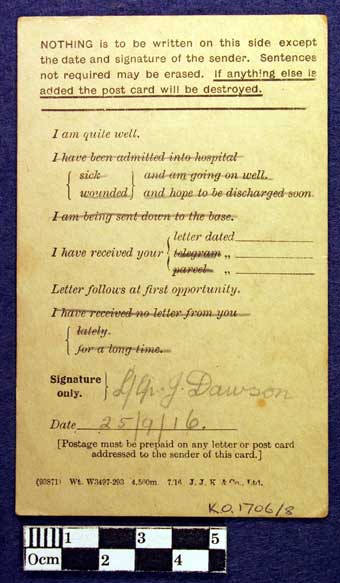 NOTHING is to be written on this side except
the date and signature of the sender. Sentences
not required may be erased. If anything else is
added the post card will be destroyed.
I am quite well.
I have been admitted into hospital
sick and am going on well.
wounded and hope to be discharged soon
I am being sent down to the base.
letter dated
I have received your telegram „
parcel „
Letter follows at first opportunity.
I have received no letter from you
lately.
for a long time.
Signature only. L/Cpr. J. Dawson
Date 25/9/16.
[Postage must be prepaid on any letter or post card
addressed to the sender of this card.]
(93871) Wt. W3497-293 4,500m. 7/16 J. J. K. & Co., Ltd.
K.O.1706/8
1 3 5
0cm 2 4